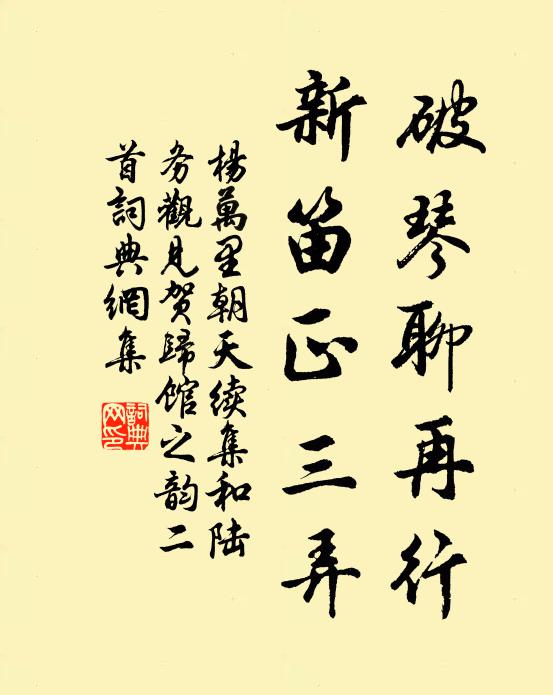 破琴聊再行
新笛正三弄
楊萬里朝天续集和陆
务觀見贺歸馆之韵二
首詞典網集
詞典网印